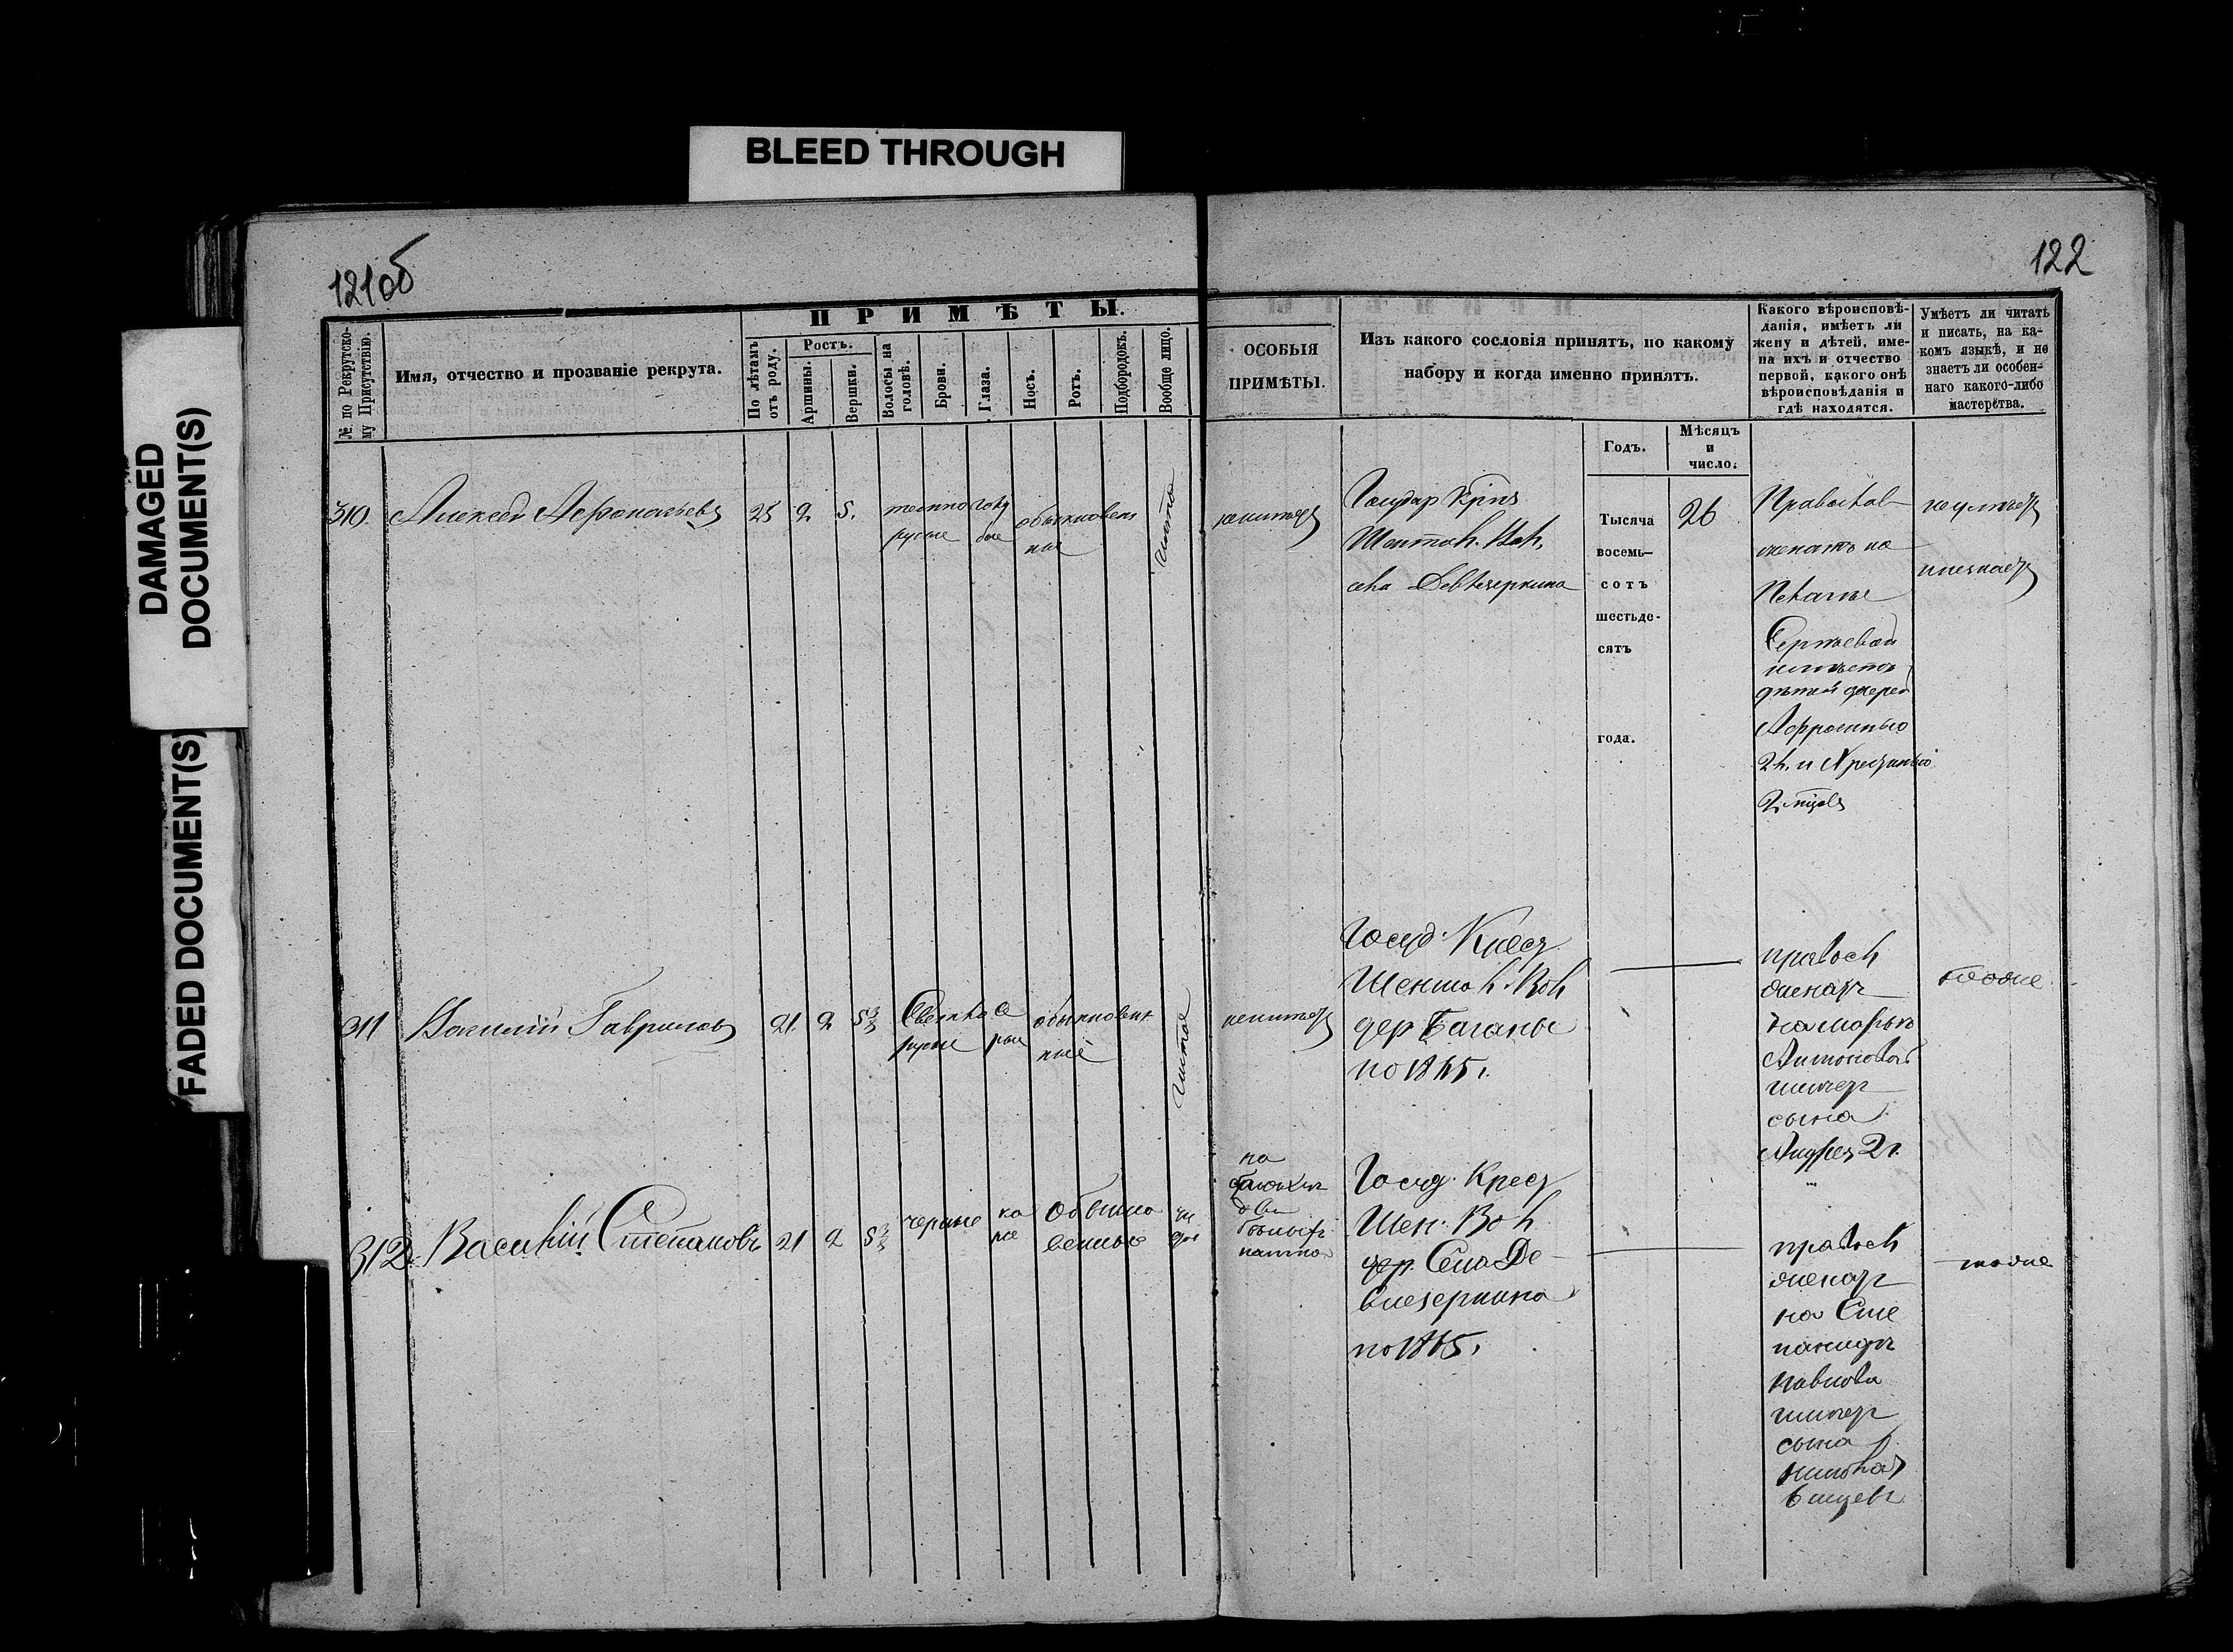 BLEED THROUGH
DAMAGED
DOCUMENT(S)
FADED DOCUMENT(S)
121об
122
ПРИМѢТЫ.
№. по Рекрутско-
му Присутствію.
Имя, отчество и прозваніе рекрута.
По лѣтамъ
отъ роду.
Ростъ.
Аршины.
Вершки.
Волосы на
головѣ.
Брови.
Глаза.
Носъ.
Ротъ.
Подбородокъ.
Вообще лицо.
ОСОБЫЯ
ПРИМѢТЫ.
Изъ какого сословія принятъ, по какому
набору и когда именно принятъ.
Какого вѣроисповѣ-
данія, имѣетъ ли
жену и дѣтей, име-
на ихъ и отчество
первой, какого онѣ
вѣроисповѣданія и
гдѣ находятся.
Умѣетъ ли читать
и писать, на ка-
комъ языкѣ, и не
знаетъ ли особен-
наго какого-либо
мастерства.
Годъ.
Мѣсяцъ
и
число.
310.
Алексей Афонасьевъ
25
2
5.
темно
русые
голу
бые
обыкновен
ные
чисто
неимеетъ
Государ Крес
Шентал. Вол.
села Девлезеркина
Тысяча
восемь-
сотъ
шестьде-
сятъ
года.
26
Православ
женатъ на
Пелагье
Сергѣевой
имѣетъ
дѣтей дочерей
Афросинью
2 л. и
неумѣетъ
311
Василий Гавриловъ
21
2
5
Светло
русые
се
рые
обыкновен
ные
чистое
неимеетъ
Госуд. Крест
Шентал. Вол
дер Баганы
по 1865 г.
правосл
женатъ
на Марье
Антоновой
имеетъ
сына
Андрея 2 г.
тоже
312.
Василий Степановъ
21
2
5
черные
ка
рие
обыкно
венные
на
Госуд. Крест
Шен. Вол
дер. Села Де
влезеркина
по 1865.
правосл
женатъ
на Сте
паниде
Павлова
имеетъ
сына
Николая
6 месец
тоже